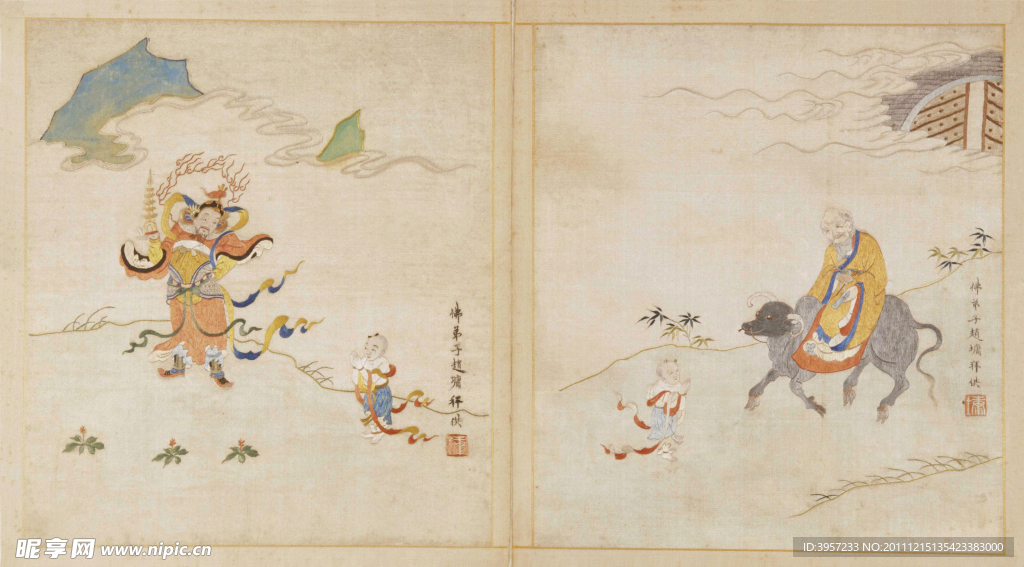 佛弟子趙墉拜供
佛弟子趙墉拜供
昵享网 www.nipic.cn
ID:3957233 NO:20111215135423383000